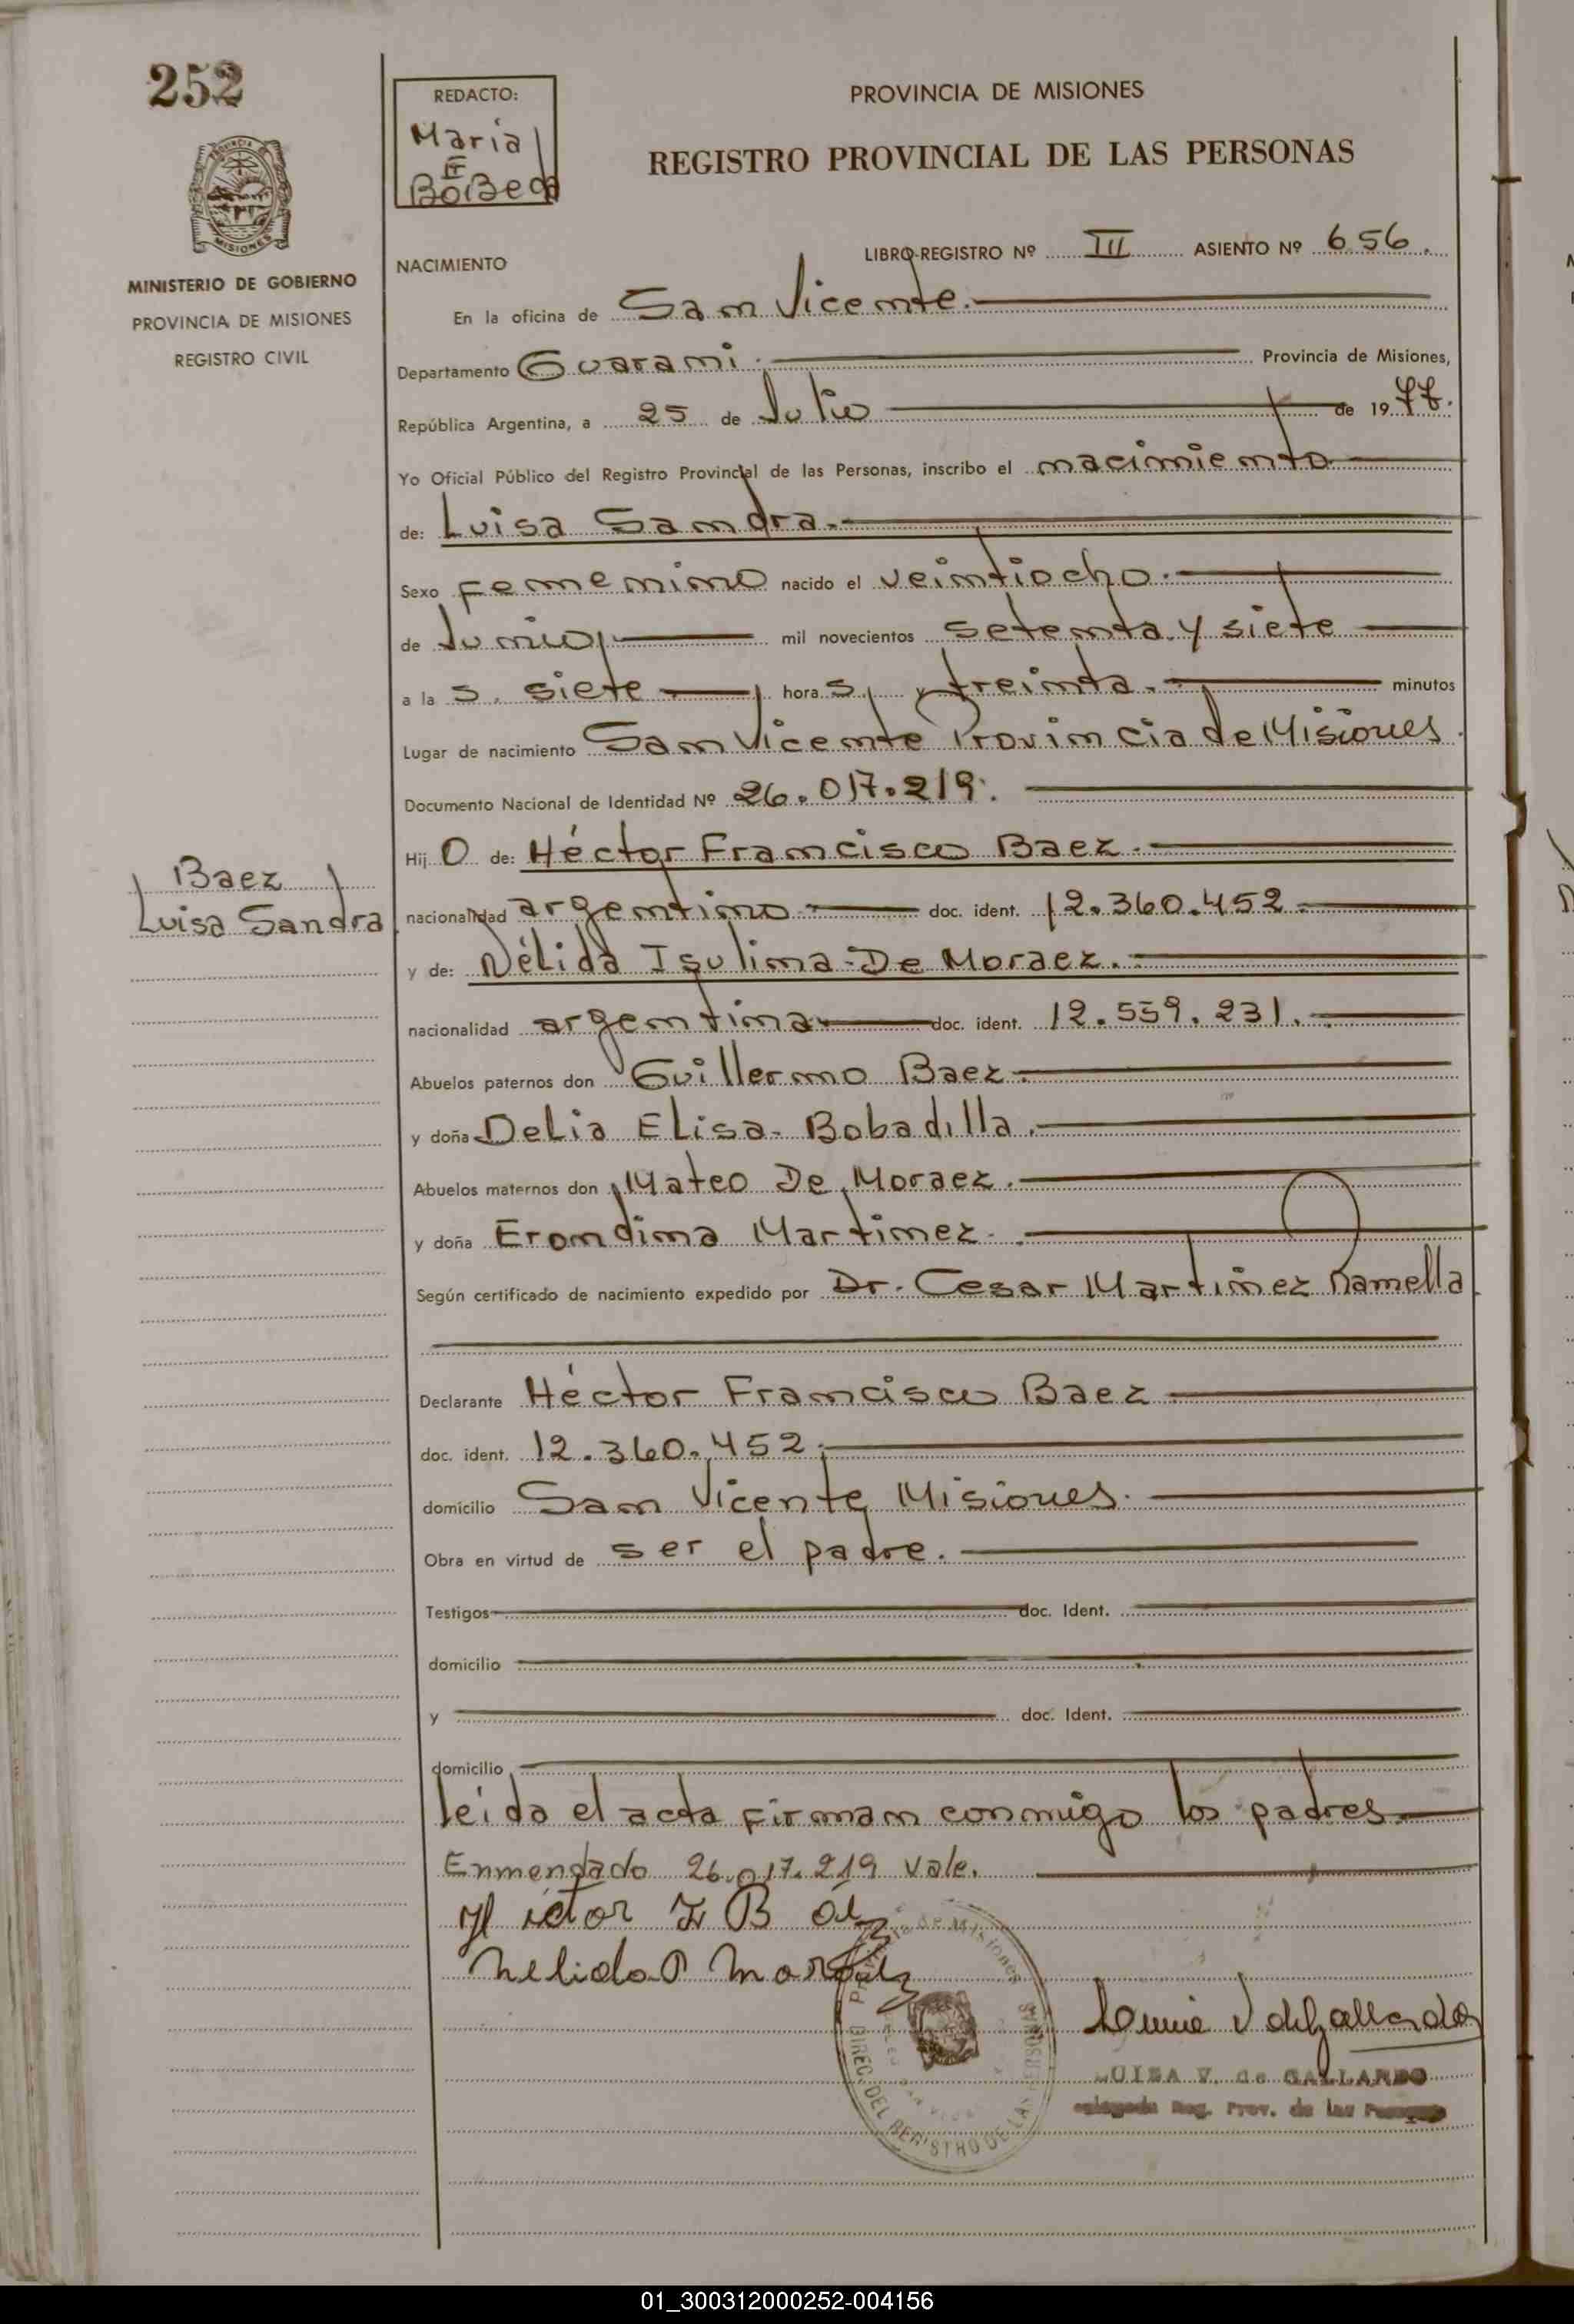 252
REDACTO:
Maria
E
BoiBeda
PROVINCIA DE MISIONES
REGISTRO PROVINCIAL DE LAS PERSONAS
MISIONES
MINISTERIO DE GOBIERNO
PROVINCIA DE MISIONES
REGISTRO CIVIL
NACIMIENTO
LIBRO-REGISTRO Nº III ASIENTO Nº 656.
En la oficina de San Vicente.
Departamento Guarani. Provincia de Misiones,
República Argentina, a 25 de Julio de 1977.
Yo Oficial Público del Registro Provincial de las Personas, inscribo el nacimiento
de: Luisa Sandra.
Sexo Femenino nacido el veintiocho.
de Junio, mil novecientos setenta y siete
a la s. siete, hora s, y treinta. minutos
Lugar de nacimiento San Vicente Provincia de Misiones.
Documento Nacional de Identidad Nº 26.017.219.
Hij o de: Héctor Francisco Baez.
Baez
Luisa Sandra
nacionalidad argentino. doc. ident. 12.360.452.
y de: Nélida Isulina De Moraez.
nacionalidad argentina. doc. ident. 12.559.231.
Abuelos paternos don Guillermo Baez.
y doña Delia Elisa Bobadilla.
Abuelos maternos don Mateo De Moraez.
y doña Erondina Martinez.
Según certificado de nacimiento expedido por Dr. Cesar Martinez Ramella
Declarante Héctor Francisco Baez
doc. ident. 12.360.452.
domicilio San Vicente Misiones.
Obra en virtud de ser el padre.
Testigos doc. Ident.
domicilio
y doc. Ident.
domicilio
leida el acta firman conmigo los padres.
Enmendado 26.017.219 vale.
Héctor F Baez
Nelida D Moraez
DIREC. DEL REGISTRO DE LAS
LUISA V. de GALLARDO
Delegada Reg. Prov. de las Personas
01_300312000252-004156